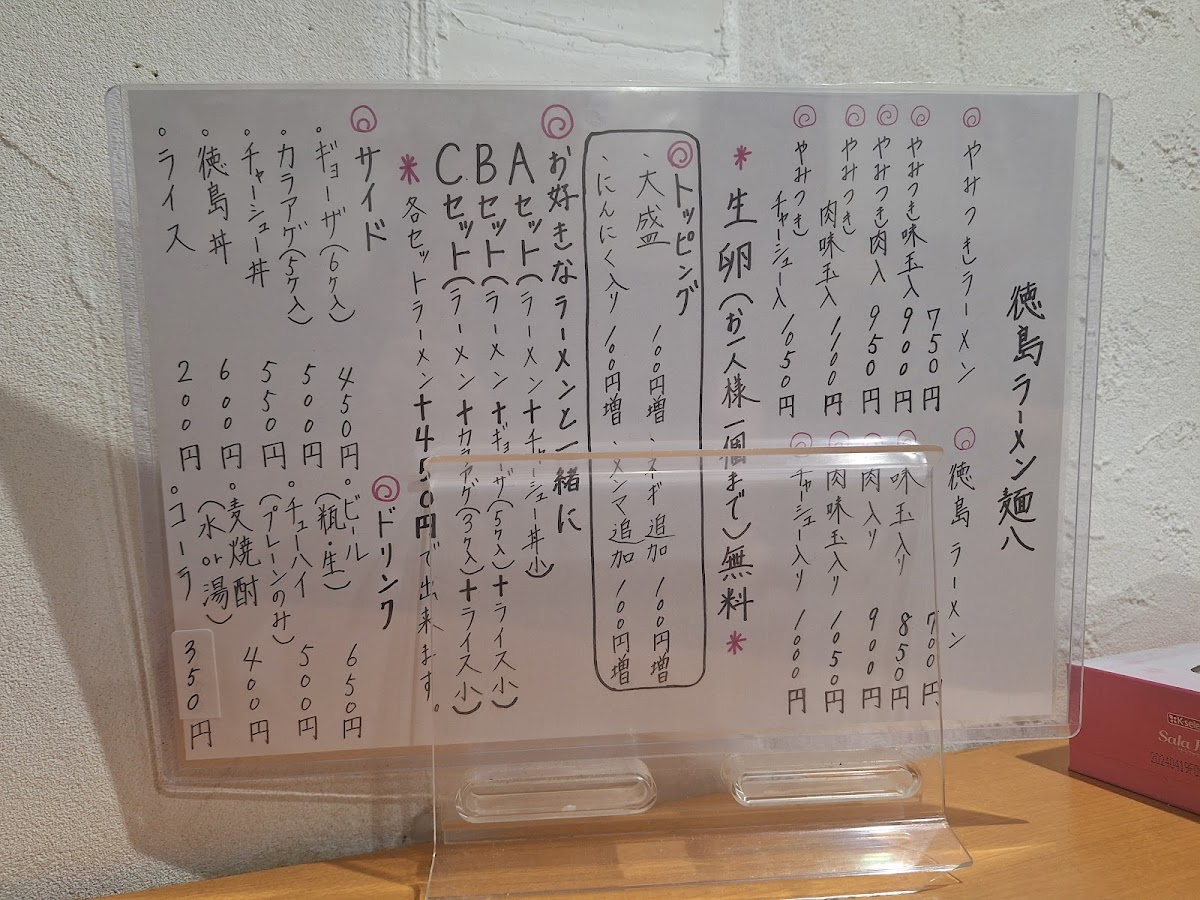 徳島ラーメン麺八
やみつきラーメン 750円
やみつき味玉入 900円
やみつき肉入 950円
やみつき肉味玉入 1100円
やみつきチャーシュー入 1050円
徳島ラーメン 700円
味玉入り 850円
肉入り 900円
肉味玉入り 1050円
チャーシュー入り 1000円
*生卵(お一人様一個まで)無料*
トッピング
・大盛 100円増 ・ネギ追加 100円増
・にんにく入り 100円増 ・メンマ追加 100円増
お好きなラーメンと一緒に
Aセット(ラーメン+チャーシュー丼小)
Bセット(ラーメン+ギョーザ(5ケ入)+ライス小)
Cセット(ラーメン+カラアゲ(3ケ入)+ライス小)
*各セットラーメン+450円で出来ます。
サイド
・ギョーザ(6ケ入) 450円
・カラアゲ(5ケ入) 500円
・チャーシュー丼 550円
・徳島丼 600円
・ライス 200円
ドリンク
・ビール(瓶・生) 650円
・チューハイ(プレーンのみ) 500円
・麦焼酎(水or湯) 400円
・コーラ 350円
Sala